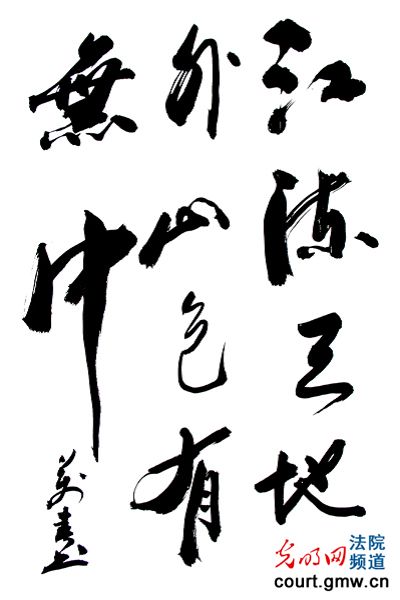 江流天地
外山色有
無中
光明网 法院
频道
court.gmw.cn